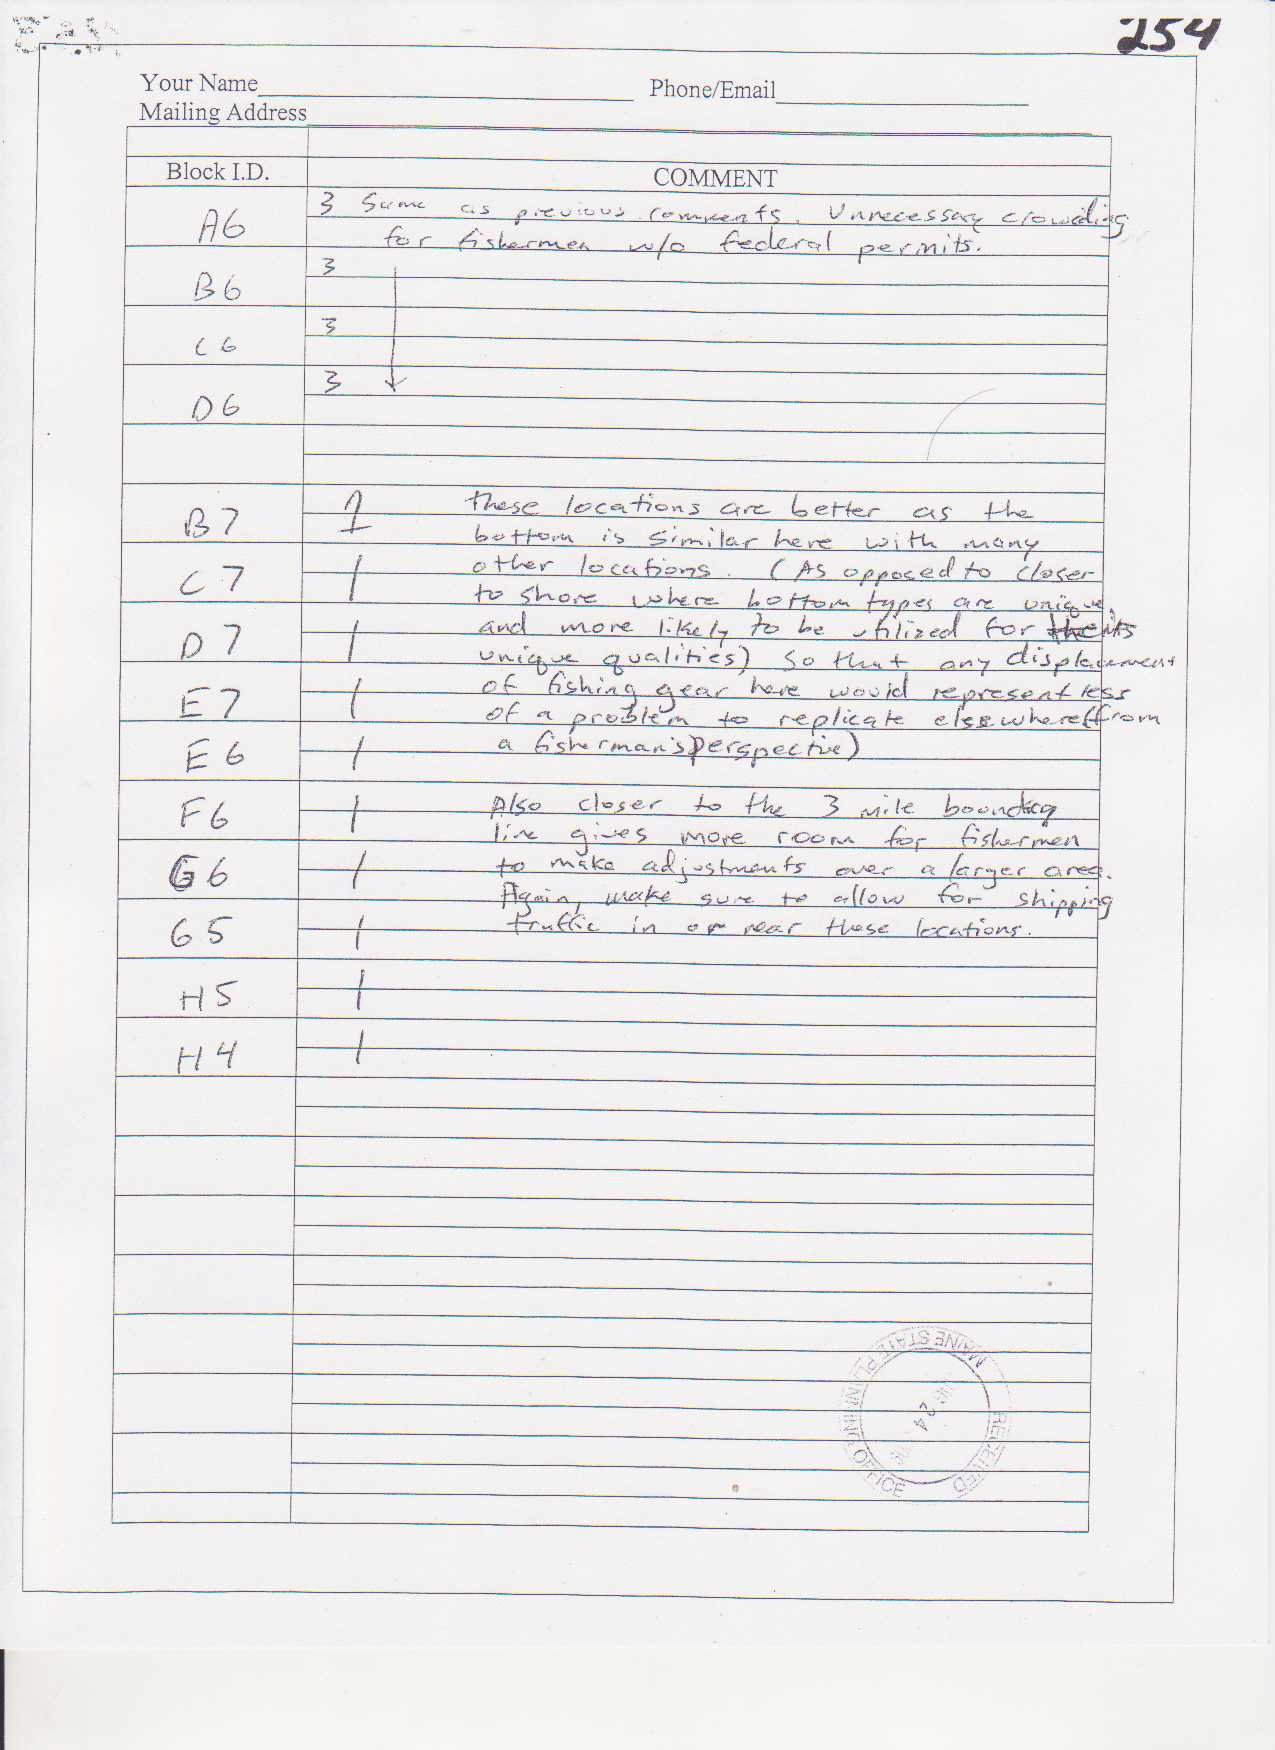 254
Your Name Phone/Email
Mailing Address
Block I.D. COMMENT
A6 3 Same as previous comments. Unnecessary crowding
for fishermen w/o federal permits.
B6 3
C6 3
D6 3
B7 1 These locations are better as the
bottom is similar here with many
C7 1 other locations. (As opposed to closer
to shore where bottom types are unique,
D7 1 and more likely to be utilized for its
unique qualities) So that any displacement
E7 1 of fishing gear here would represent less
of a problem to replicate elsewhere (from
E6 1 a fisherman's perspective)
F6 1 Also closer to the 3 mile boundary
line gives more room for fishermen
G6 1 to make adjustments over a larger area.
Again, make sure to allow for shipping
G5 1 traffic in or near these locations.
H5 1
H4 1
MAINE STATE PLANNING OFFICE
RECEIVED
24